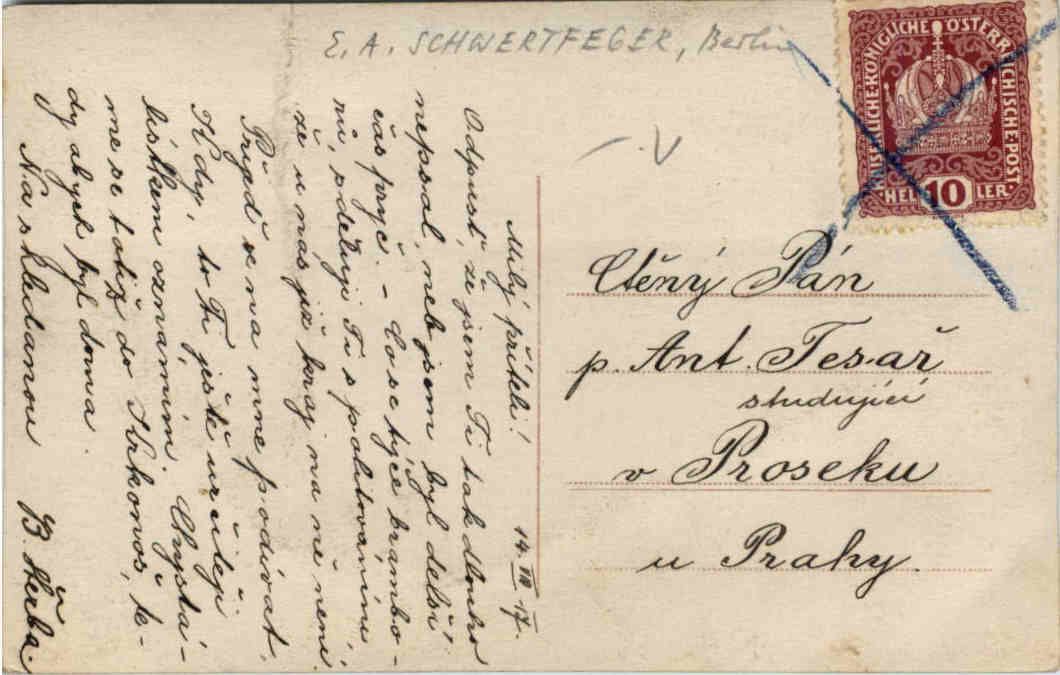 E. A. SCHWERTFEGER, Berlin
KAISERLICHE·KÖNIGLICHE·ÖSTERREICHISCHE·POST
HEL 10 LER
14. VIII 17.
Milý příteli!
Odpusť, že jsem Ti tak dlouho
nepsal, neb jsem byl delší
čas pryč. - Co se týče brambo-
rů, sděluji Ti s politováním,
že u nás již kraj na ně není.
Přijď se na mne podívat.
Kdy, to Ti ještě určitěji
lístkem oznámím. Chystá-
me se totiž do Krkonoš, te-
dy abych byl doma.
Na shledanou B. Škrba.
Ctěný Pán
p. Ant. Tesař
studující
v Proseku
u Prahy.